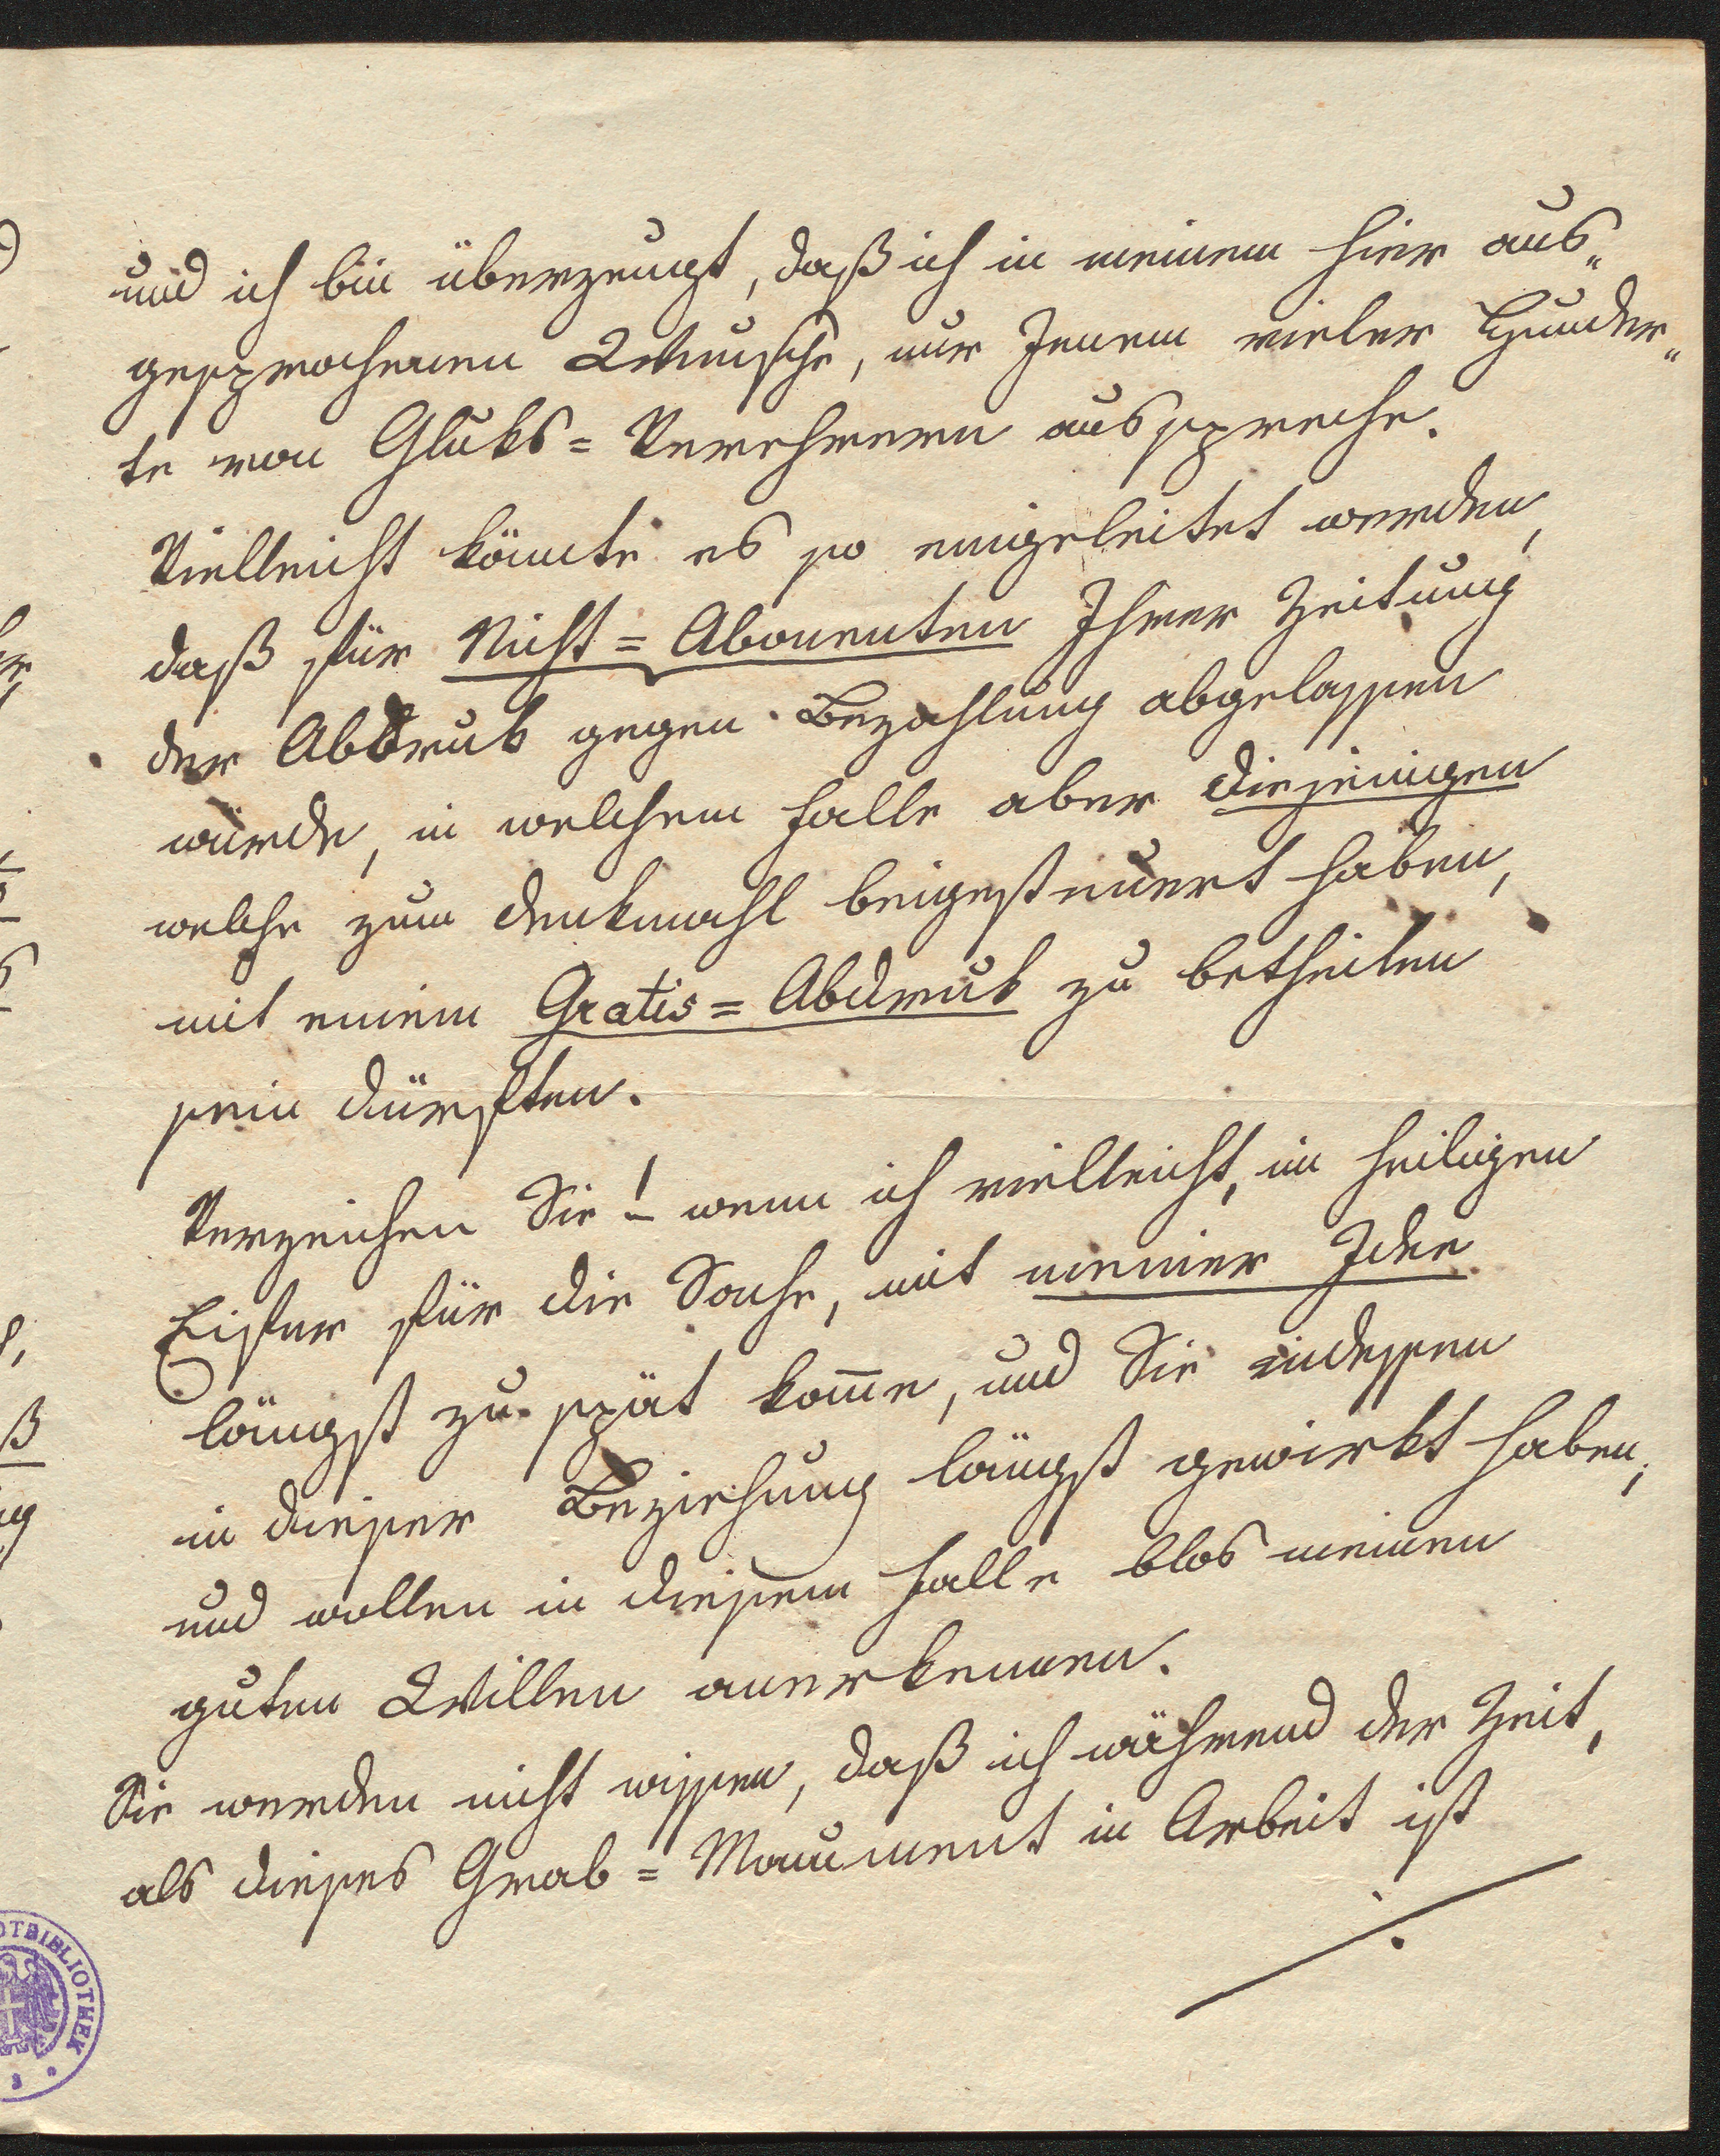 und ich bin überzeugt, daß ich in meinem hier aus„
gesprochenen Wunsche, nur Jenem vieler Hunder„
te von Gluks=Verehrern ausspreche.
Vielleicht könnte es so eingeleitet werden,
daß für Nicht=Abonenten Ihrer Zeitung
der Abdruk gegen Bezahlung abgelassen
würde, in welchem Falle aber diejenigen
welche zum Denkmahl beigesteuert haben,
mit einem Gratis=Abdruk zu betheilen
sein dürften.
Verzeihen Sie! wenn ich vielleicht, im heiligen
Eifer für die Sache, mit meiner Idee
längst zu spät kom̄e, und Sie indessen
in dieser Beziehung längst gewirkt haben,
und wollen in diesem Falle blos meinen
guten Willen anerkennen.
Sie werden nicht wissen, daß ich während der Zeit,
als dieses Grab=Monument in Arbeit ist
./.